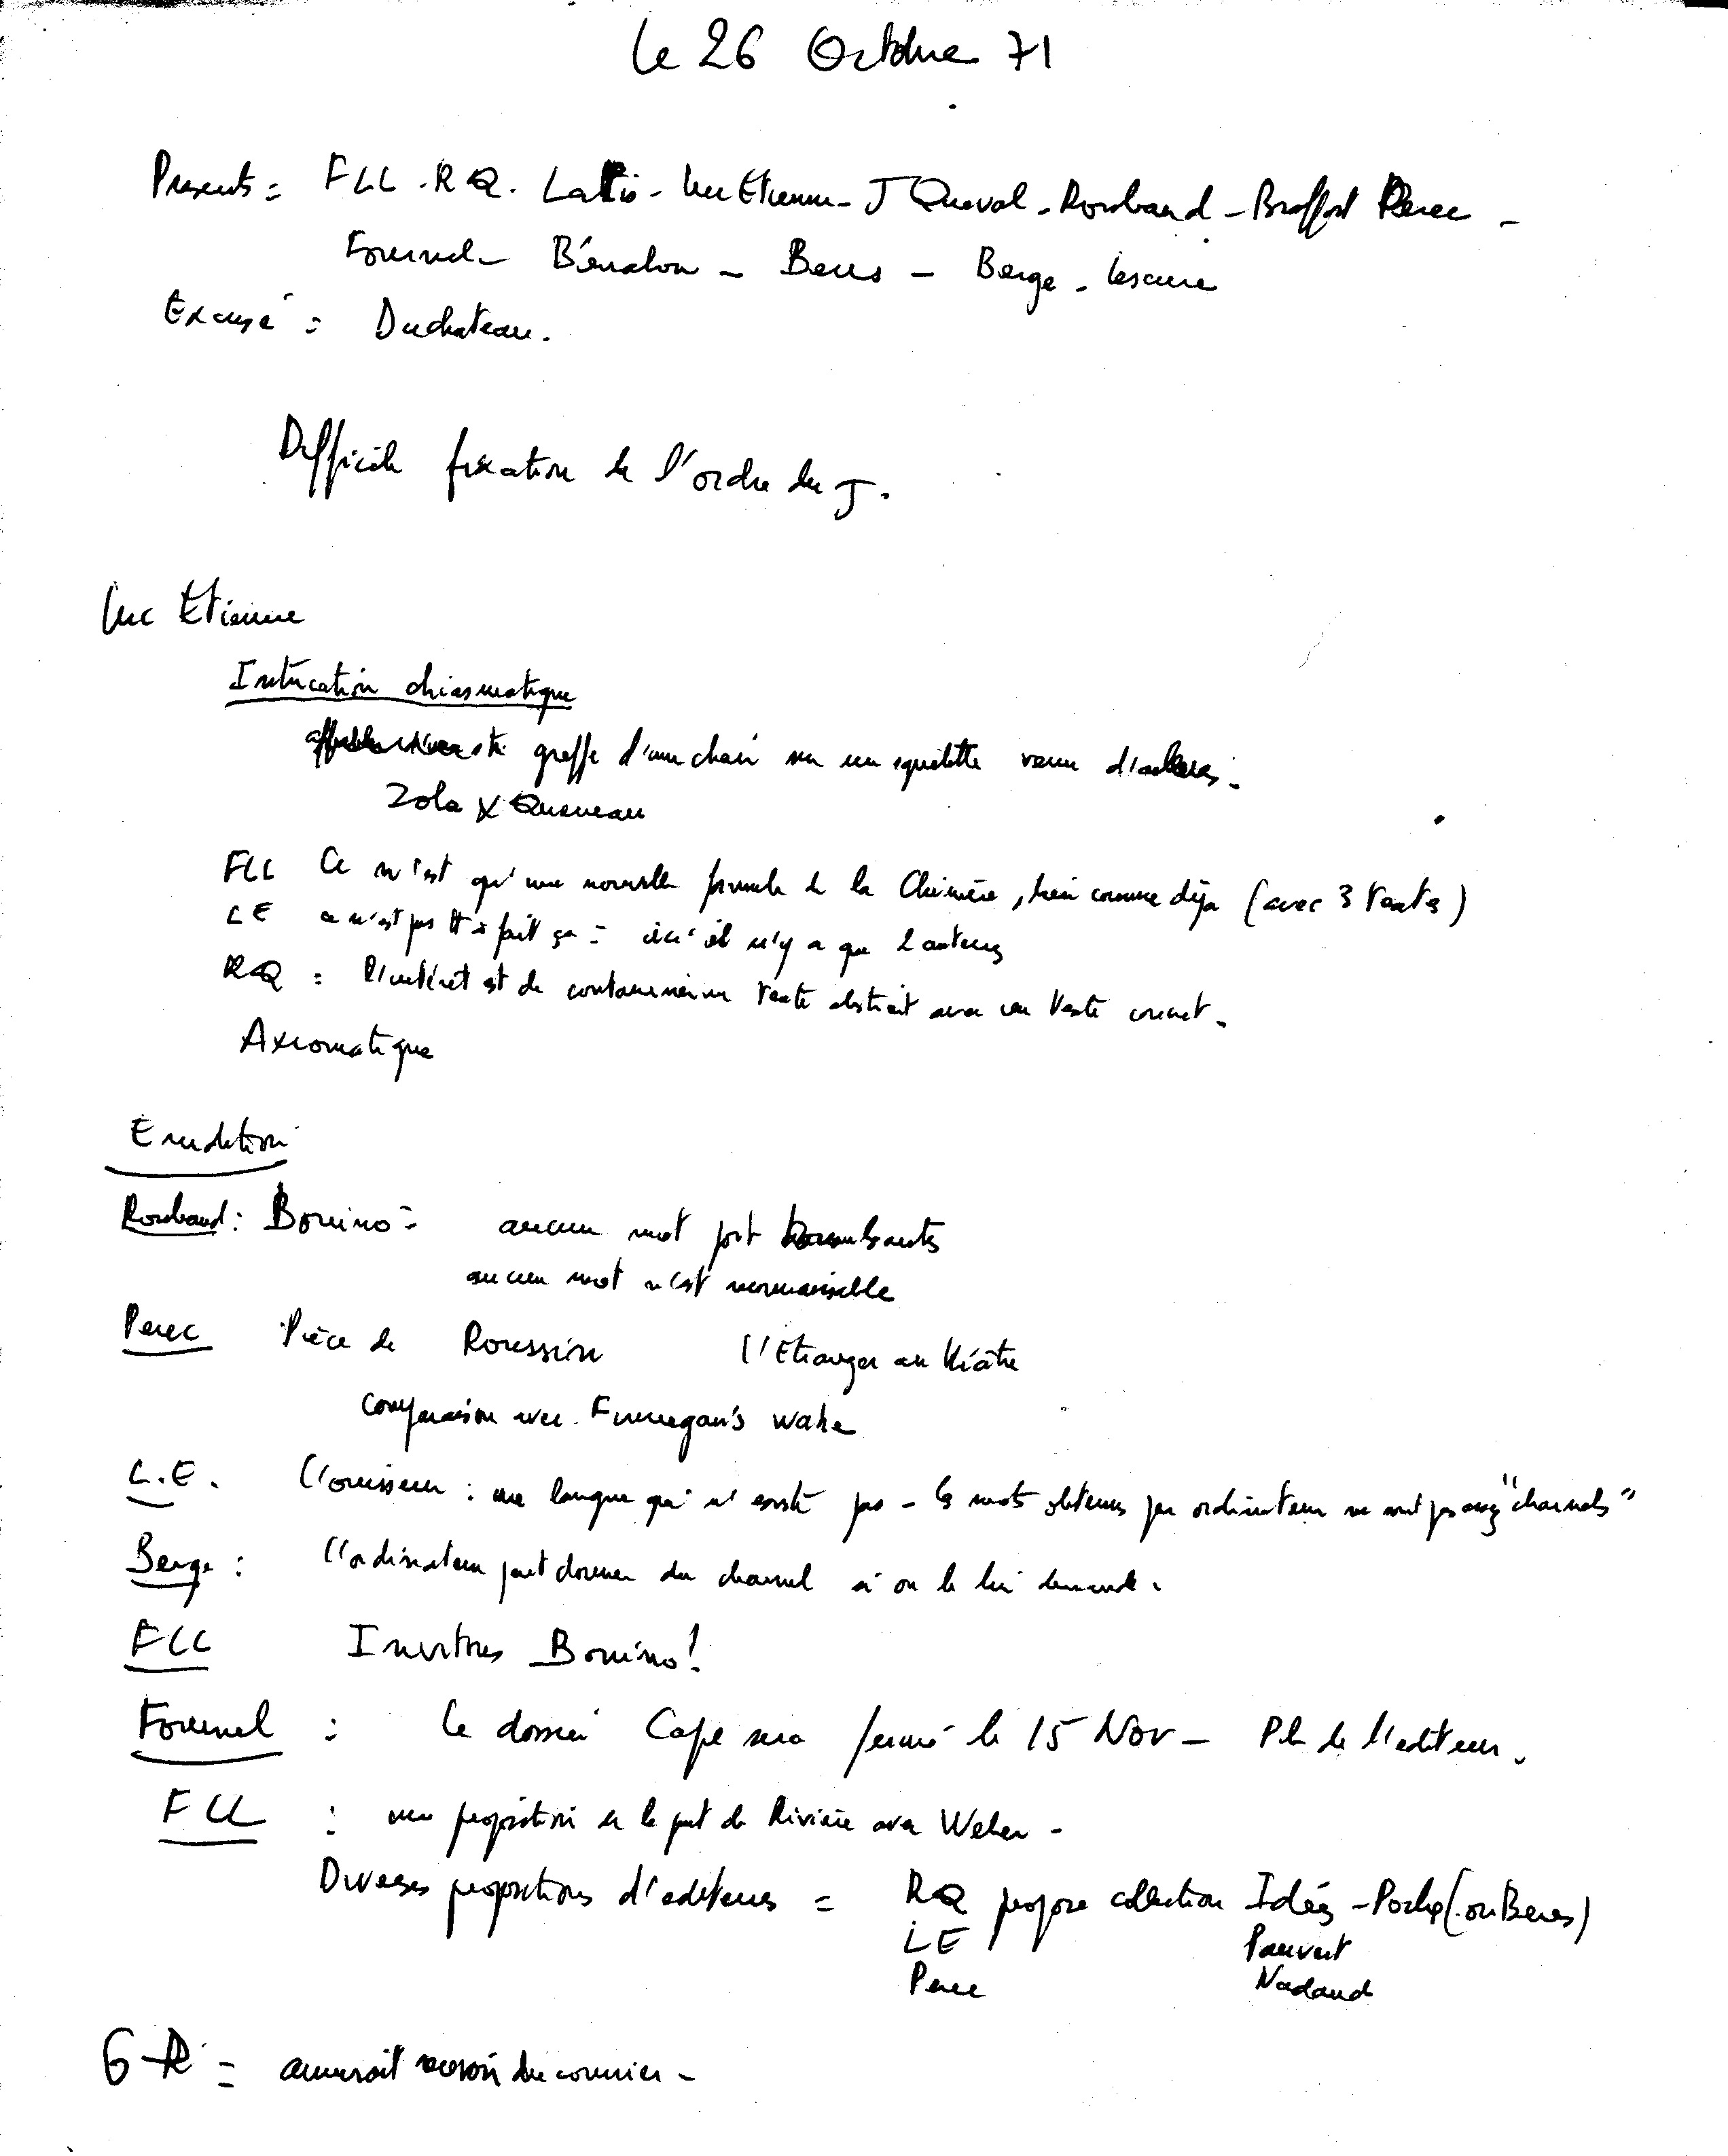 Le 26 Octobre 71
Presents = FLL - RQ. Latis - Luc Etienne - J Queval - Roubaud - Braffort Perec -
Fournel - Bénabou - Bens - Berge - Lescure
Excusé = Duchateau.
Difficile fixation de l'ordre du J.
Luc Etienne
Intrication chiasmatique
greffe d'une chair sur un squelette venu d'ailleurs.
Zola X Queneau
FLL Ce n'est qu'une nouvelle formule de la Chimère, bien connue déjà (avec 3 textes)
LE ce n'est pas tt à fait ça = ici il n'y a que 2 auteurs
RQ = l'intérêt est de contaminer un texte abstrait avec un texte concret.
Axiomatique
Erudition
Roubaud : Bonino = aucun mot
aucun mot n'est
Perec Pièce de Roussin L'Etranger au théâtre
comparaison avec Finnegan's wake
L.E. : une langue qui n'existe pas - les mots obtenus par ordinateur ne sont pas assez "charnels"
Berge : L'ordinateur peut donner du charnel si on le lui demande.
FLL Invitons Bonino !
Fournel : Le dossier Cape sera fermé le 15 Nov - Pb de l'editeur.
FLL : une proposition de la part de Rivière avec Weber -
Diverses propositions d'editeurs = RQ propose collection Idées - Poche (ou Bens)
LE Pauvert
Perec Nadaud
G-R = aimerait recevoir du courrier -